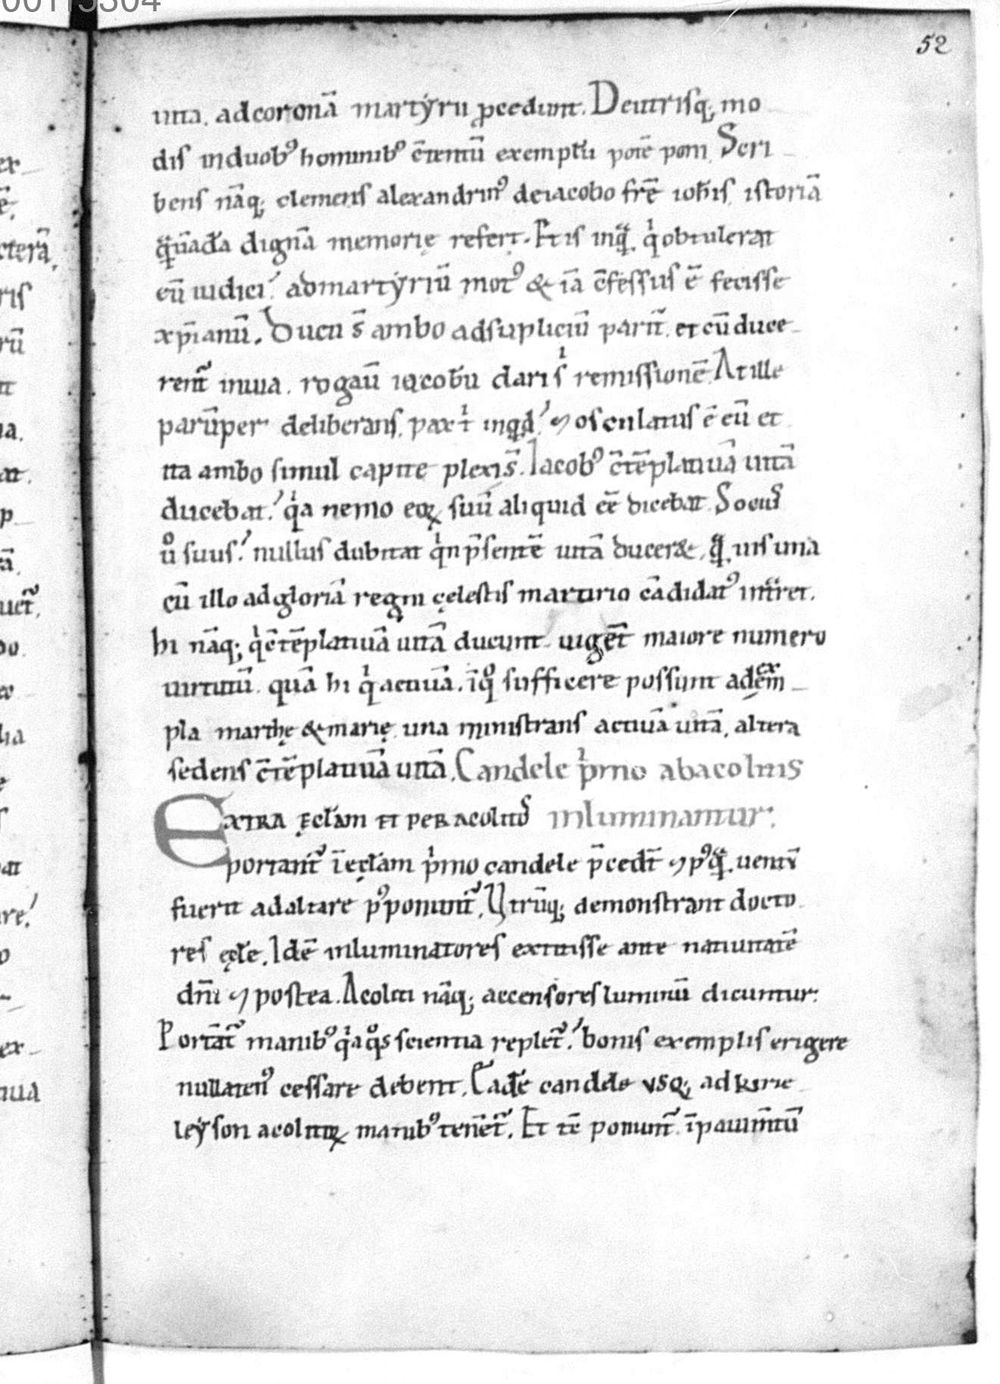 00115304
52
uita. ad coronā martẏrii ꝓcedunt. De utrisq; mo
dis in duob᷒ hominib᷒ c̄temū exemplū potē poni. Scri
bens nāq; clemens alexandrin᷒ de iacobo frē ioh̄is istoriā
q̄ndā dignā memorię refert. Et is inq̄ qͥ obtulerat
eū iudici. ad martẏriū mot᷒ & iā c̄fessus ē fecisse
xp̄ianū. Ducti s̄ ambo ad supliciū parit̄. et cū duce
rent̄ in uia. rogauͮ iacobū dari sͥ remissionē. At ille
parūper deliberans. pax tͥ inqͥd. ⁊ osculatus ē eū et
ita ambo simul capite plexi s̄. Iacob᷒ c̄tēplatiuā uitā
ducebat. qͥa nemo eoꝝ suū aliquid eē dicebat. Socius
ů suus. nullus dubitat qͥn p̄sentē uitā ducer&. q̄uis una
cū illo ad gloriā regni cęlestis martirio cādidat᷒ int̄ret.
hi nāq; qͥ c̄tēplatiuā uitā ducunt. uigēt maiore numero
uirtutū. quā hi qͥ actiuā. īqͦ sufficere possunt ad exē
pla marthę & marię. una ministrans actiuā uitā. altera
sedens c̄tēplatiuā uitā. Candele pͥmo ab acolitis
Extra ęcl̄am et per acolitos inluminantur.
portant̄ ī ęcl̄am pͥmo candele p̄cedt̄ ⁊ p᷒q̄ uentū
fuerit ad altare p᷒ponunt̄. Utrūq; demonstrant docto
res ęcl̄e. Idē inluminatores extitisse ante natiuitatē
dn̄i ⁊ postea. Acoliti nāq; accensores luminū dicuntur.
Portāt̄ manib᷒ qͥa qͦs scientia replet̄. bonis exemplis erigere
nullaten᷒ cessare debent. Eadē candele usq; ad kirie
leẏson acolitoꝝ manib᷒ tenēt̄. Et tē ponunt̄ ī pauim̄tū